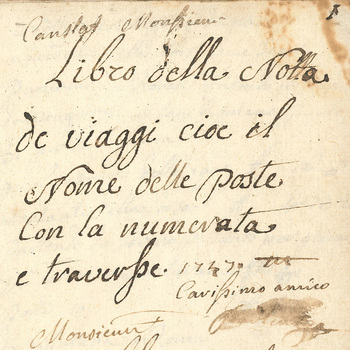 Monsieur
Libro della Notta
de viaggi cioe il
Nome delle poste
Con la numerata
e traverse. 1747.
Carissimo amico
Monsieur